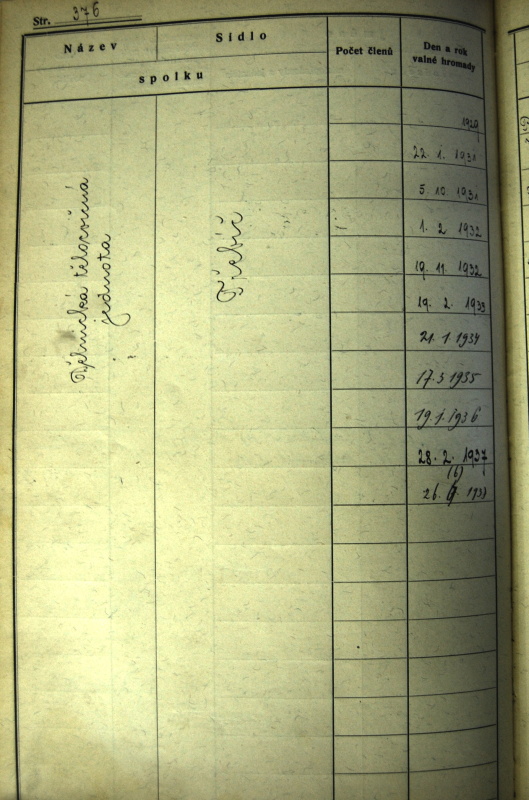 Str. 376
Název
Sídlo
Počet členů
Den a rok
valné hromady
spolku
Dělnická tělocvičná
jednota
Třebíč
1929
22. 1. 1931
5. 10 1931
1. 2 1932
19. 11. 1932
19. 2. 1933
21. 1. 1934
17. 3 1935
19. 1. 1936
28. 2. 1937
(6)
26. 1937